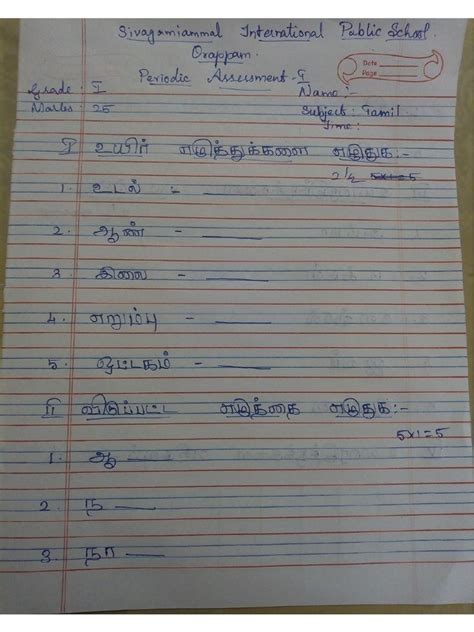 Sivagamiammal International Public School.
Orappam.
Periodic Assessment - I
Date
Page
Grade : I
Name :-
Marks : 25
Subject : Tamil
Time :
I உயிர் எழுத்துக்களை எழுதுக :-
2 1/2 5x1=5
1. உடல் - ____
2. ஆண் - ____
3. இலை - ____
4. எறும்பு - ____
5. ஒட்டகம் - ____
II விடுபட்ட எழுத்தை எழுதுக :-
5x1=5
1. ஆ ____
2. ந ____
3. நா ____